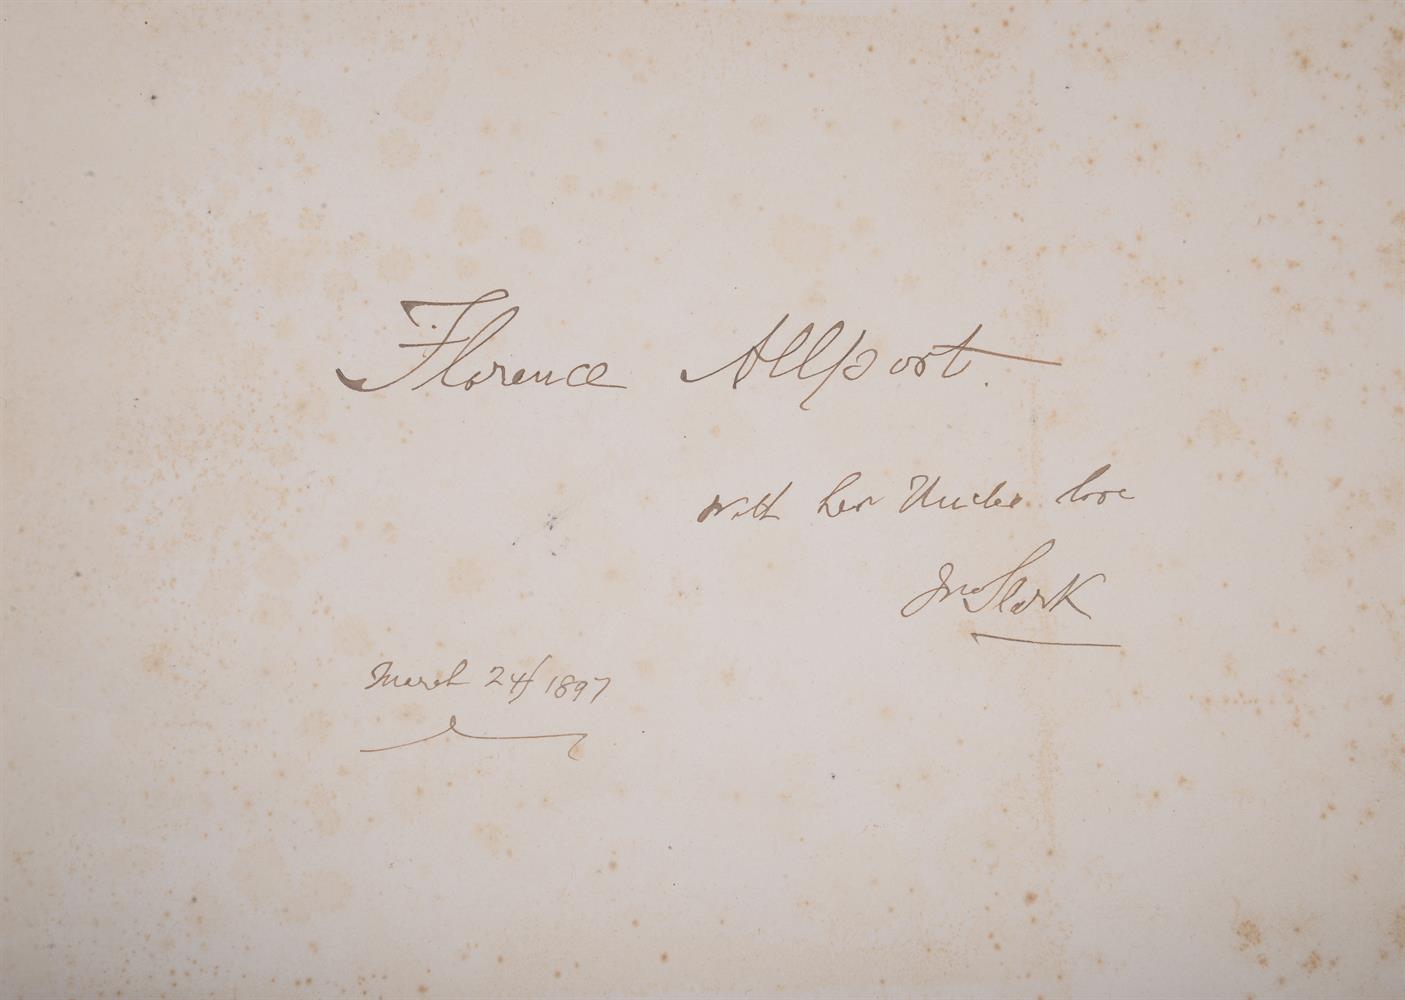 Florence Allport.
With her Uncles love
Jno Slark
March 24/1897